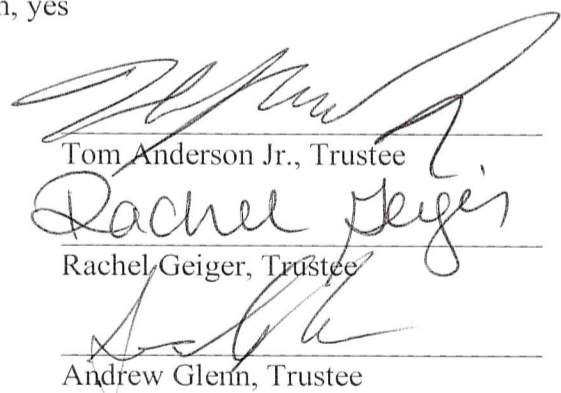 n, yes
Tom Anderson Jr., Trustee
Rachel Geiger
Rachel Geiger, Trustee
Andrew Glenn, Trustee